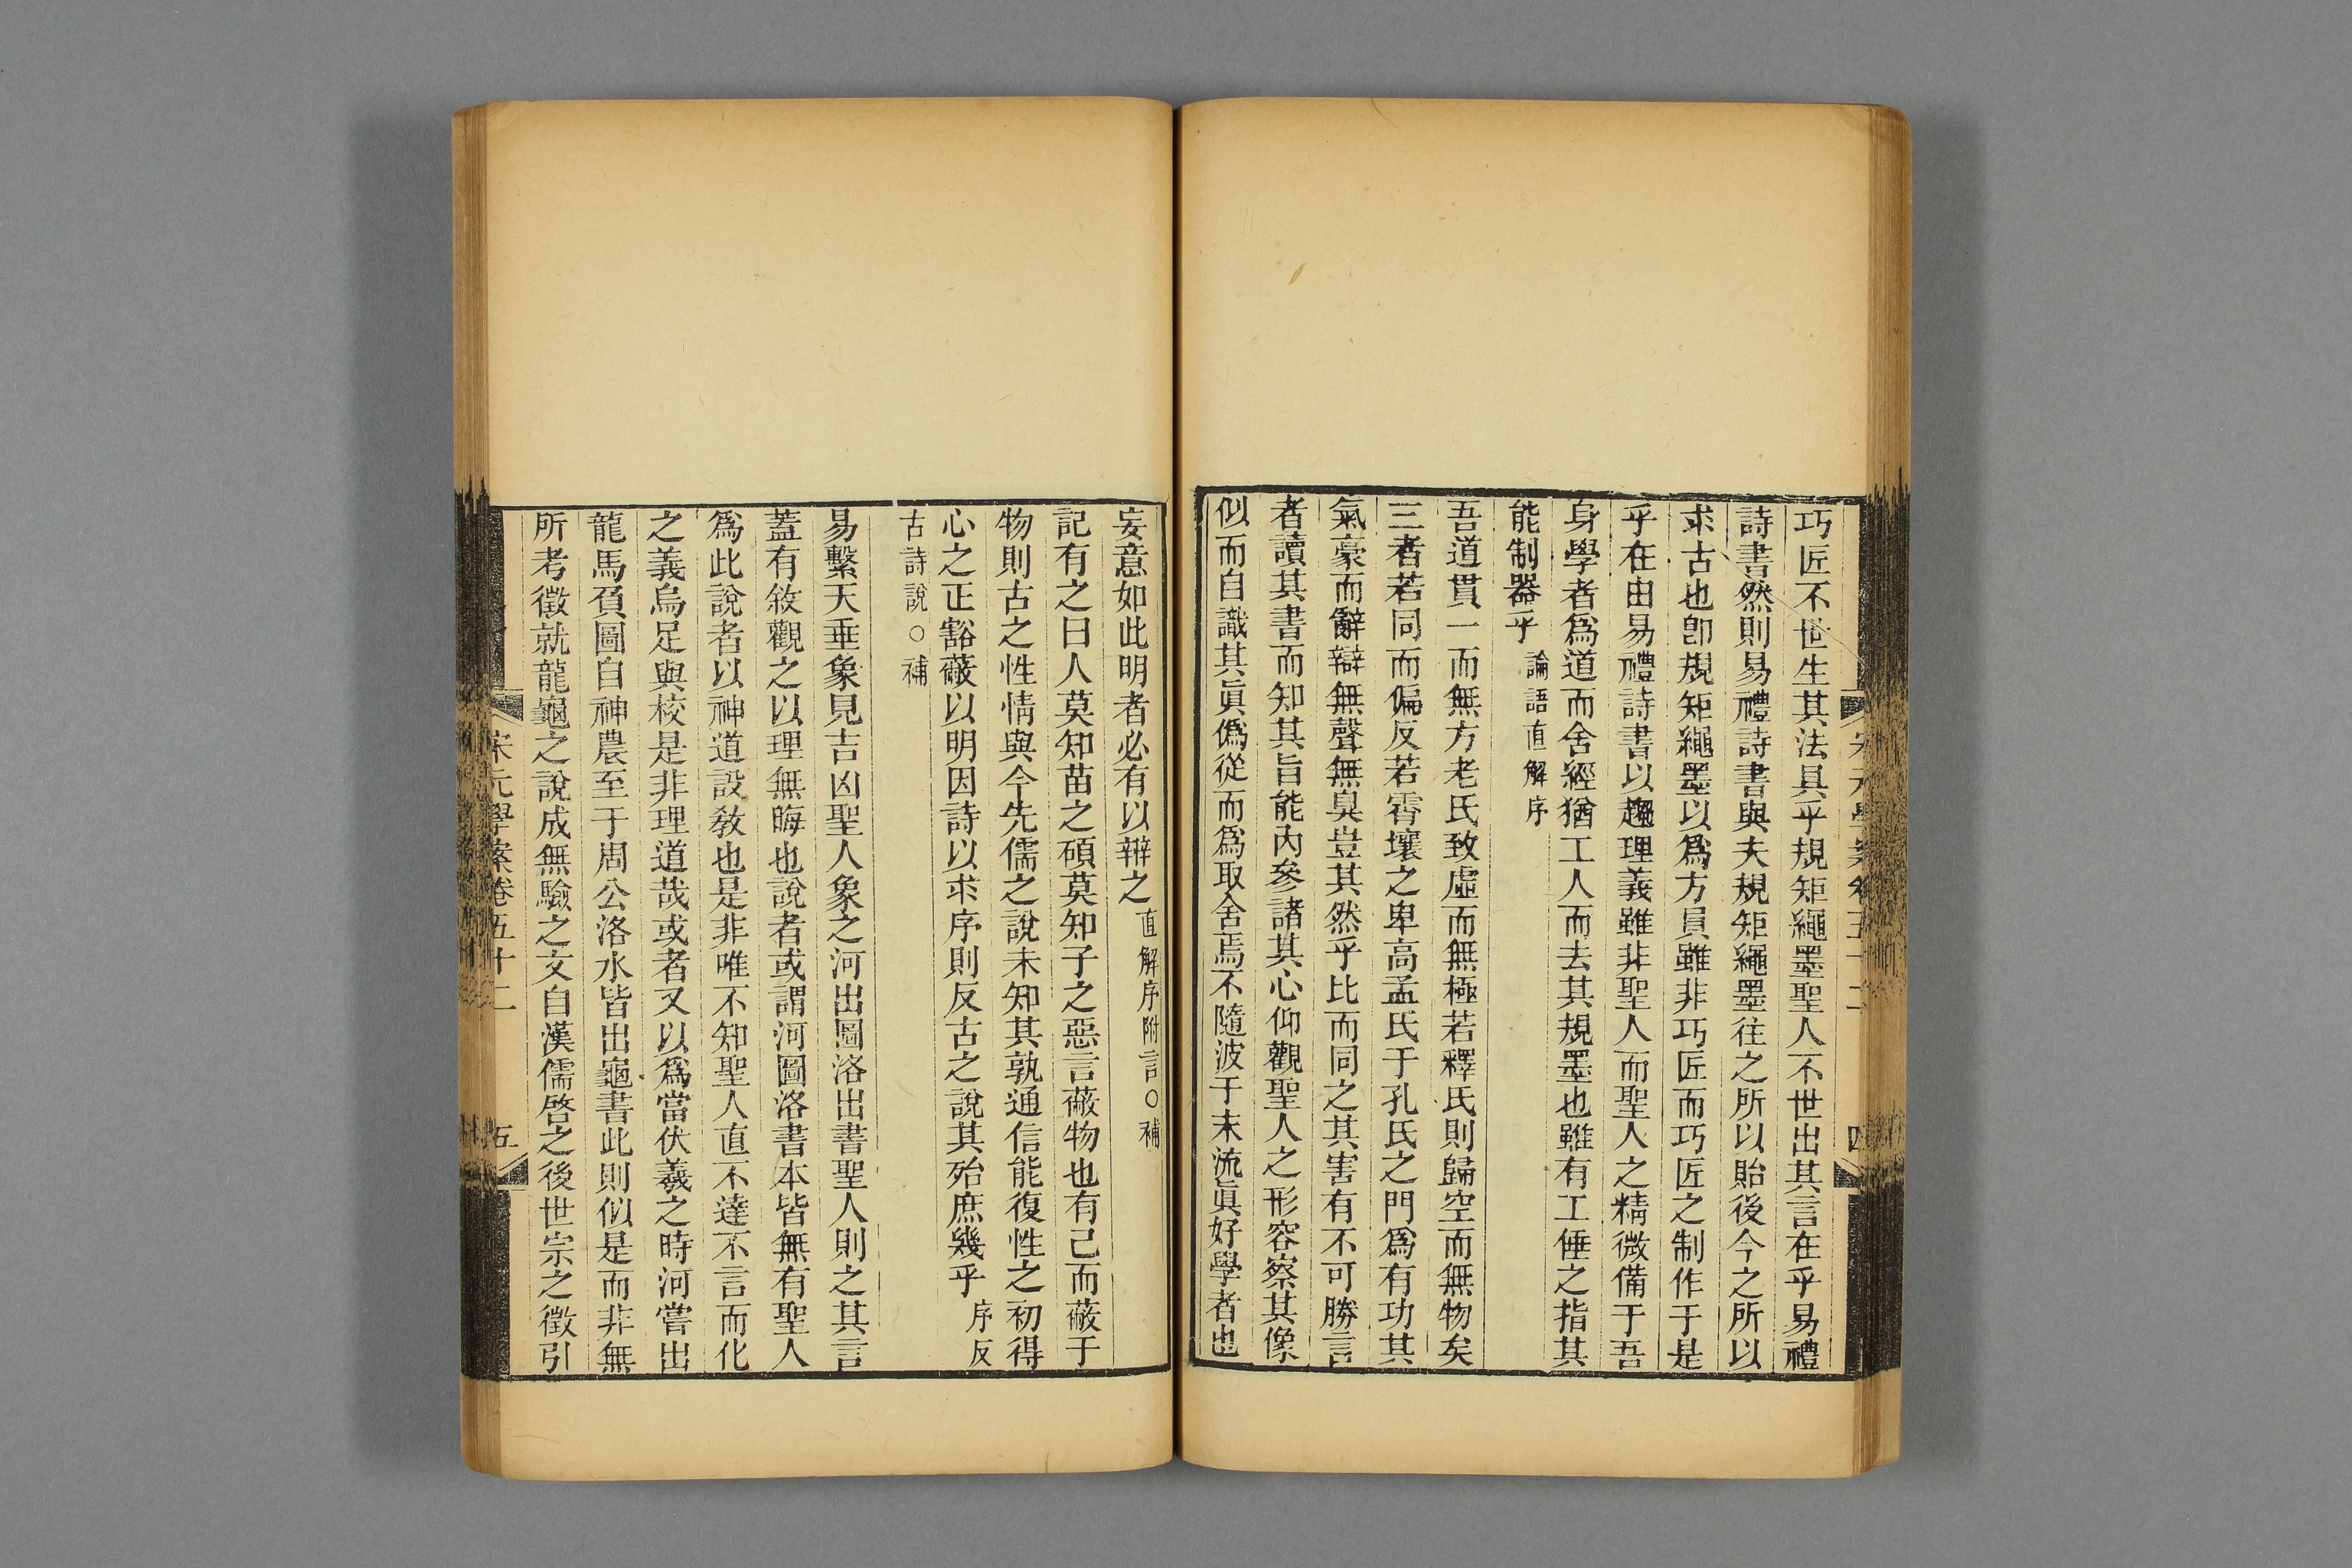 巧匠不世生其法具乎規矩繩墨聖人不世出其言在乎易禮
詩書然則易禮詩書與夫規矩繩墨往之所以貽後今之所以
求古也卽規矩繩墨以爲方員雖非巧匠而巧匠之制作于是
乎在由易禮詩書以趨理義雖非聖人而聖人之精微備于吾
身學者爲道而舍經猶工人而去其規墨也雖有工倕之指其
能制器乎論語直解序
吾道貫一而無方老氏致虛而無極若釋氏則歸空而無物矣
三者若同而偏反若霄壤之卑高孟氏于孔氏之門爲有功其
氣豪而辭辯無聲無臭豈其然乎比而同之其害有不可勝言
者讀其書而知其旨能內參諸其心仰觀聖人之形容察其像
似而自識其眞僞從而爲取舍焉不隨波于末流眞好學者也
妄意如此明者必有以辯之直解序附言○補
記有之曰人莫知苗之碩莫知子之惡言蔽物也有己而蔽于
物則古之性情與今先儒之說未知其孰通信能復性之初得
心之正豁蔽以明因詩以求序則反古之說其殆庶幾乎序反
古詩說○補
易繫天垂象見吉凶聖人象之河出圖洛出書聖人則之其言
蓋有敘觀之以理無晦也說者或謂河圖洛書本皆無有聖人
爲此說者以神道設敎也是非唯不知聖人直不達不言而化
之義烏足與校是非理道哉或者又以爲當伏羲之時河嘗出
龍馬負圖自神農至于周公洛水皆出龜書此則似是而非無
所考徵就龍龜之說成無驗之文自漢儒啓之後世宗之徵引
宋元學案卷五十二
五